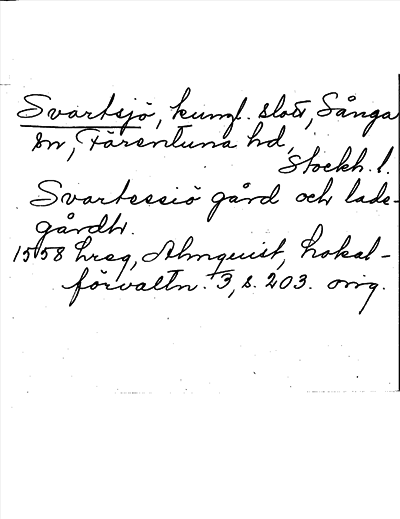 Svartsjö, kungl. slott, Sånga
sn, Färentuna hd,
Stockh. l.
Svartessiö gård och lade-
gårdh.
1558 hreg, Almquist, Lokal-
förvaltn. 3, s. 203. orig.